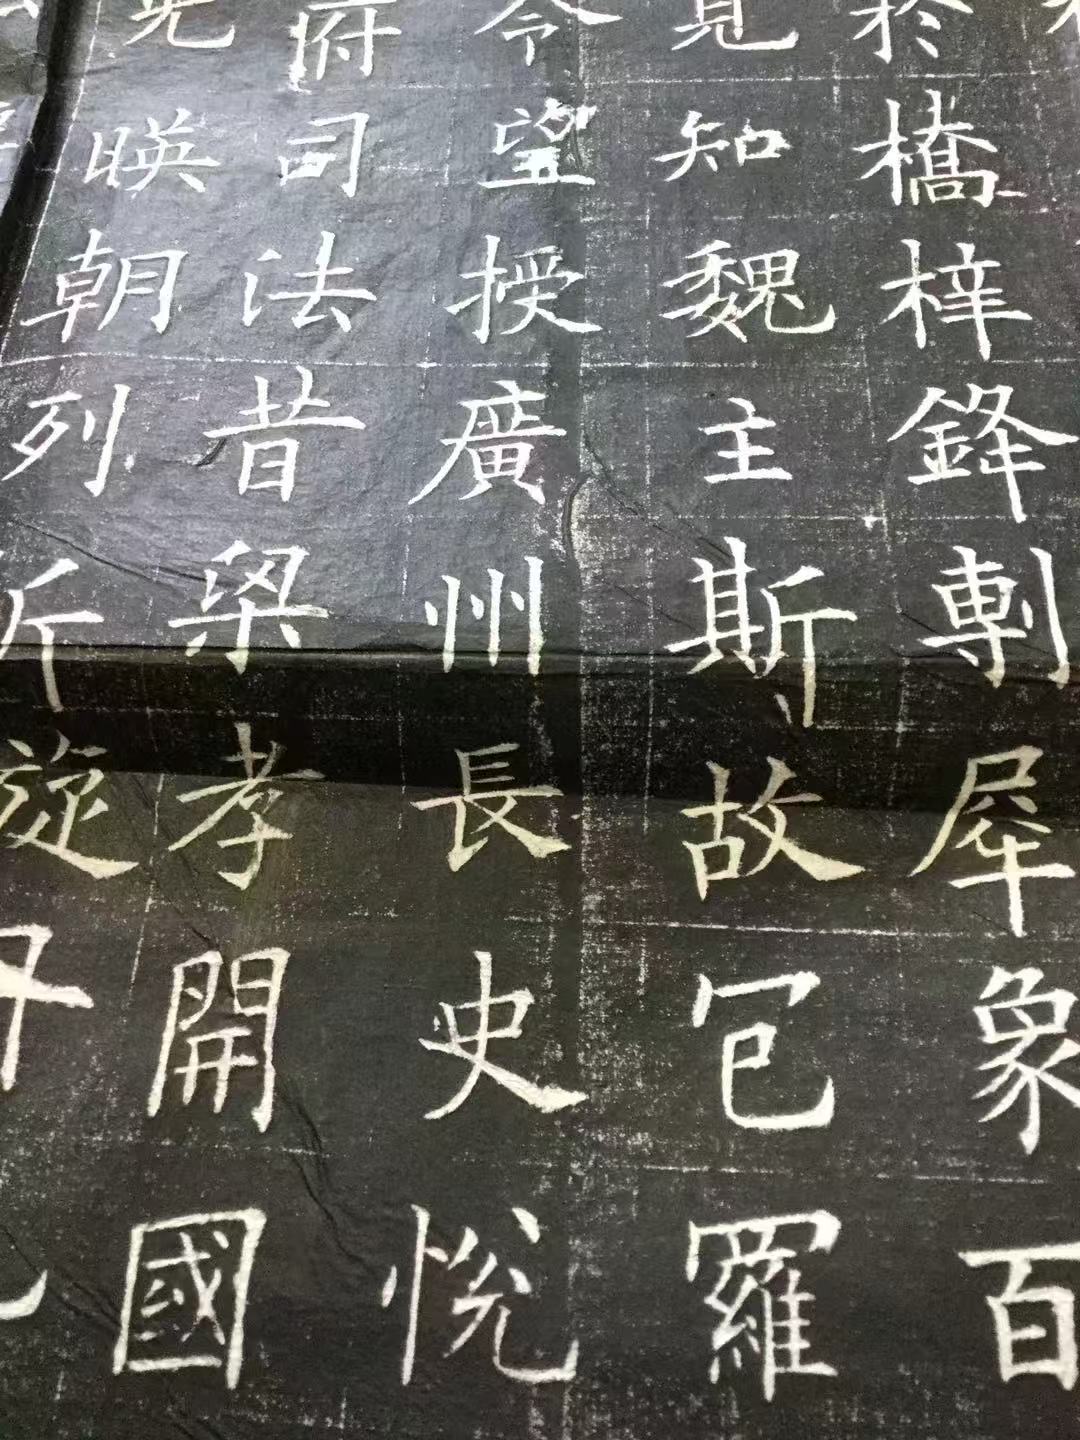 於橋梓鋒剸犀象百
見知魏主斯故包羅
令望授廣州長史悅
府司法昔梁孝開國
光暎朝列